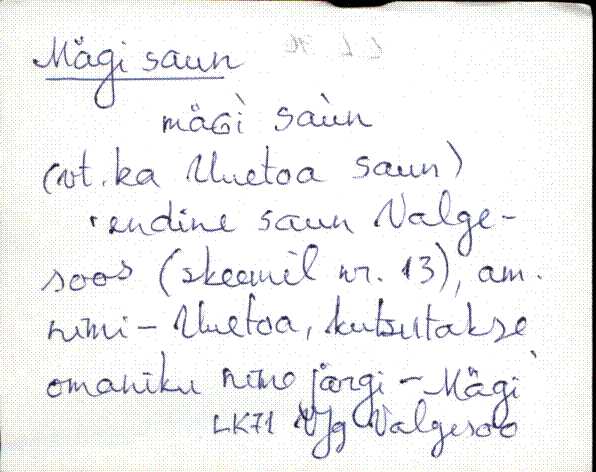 Mägi saun
mäGì saùn
(vt. ka Uuetoa saun)
endine saun Valge-
soos (skeemil nr. 13), am.
nimi - Uuetoa, kutsutakse
omaniku nime järgi - Mägi
LK71 Vg Valgesoo